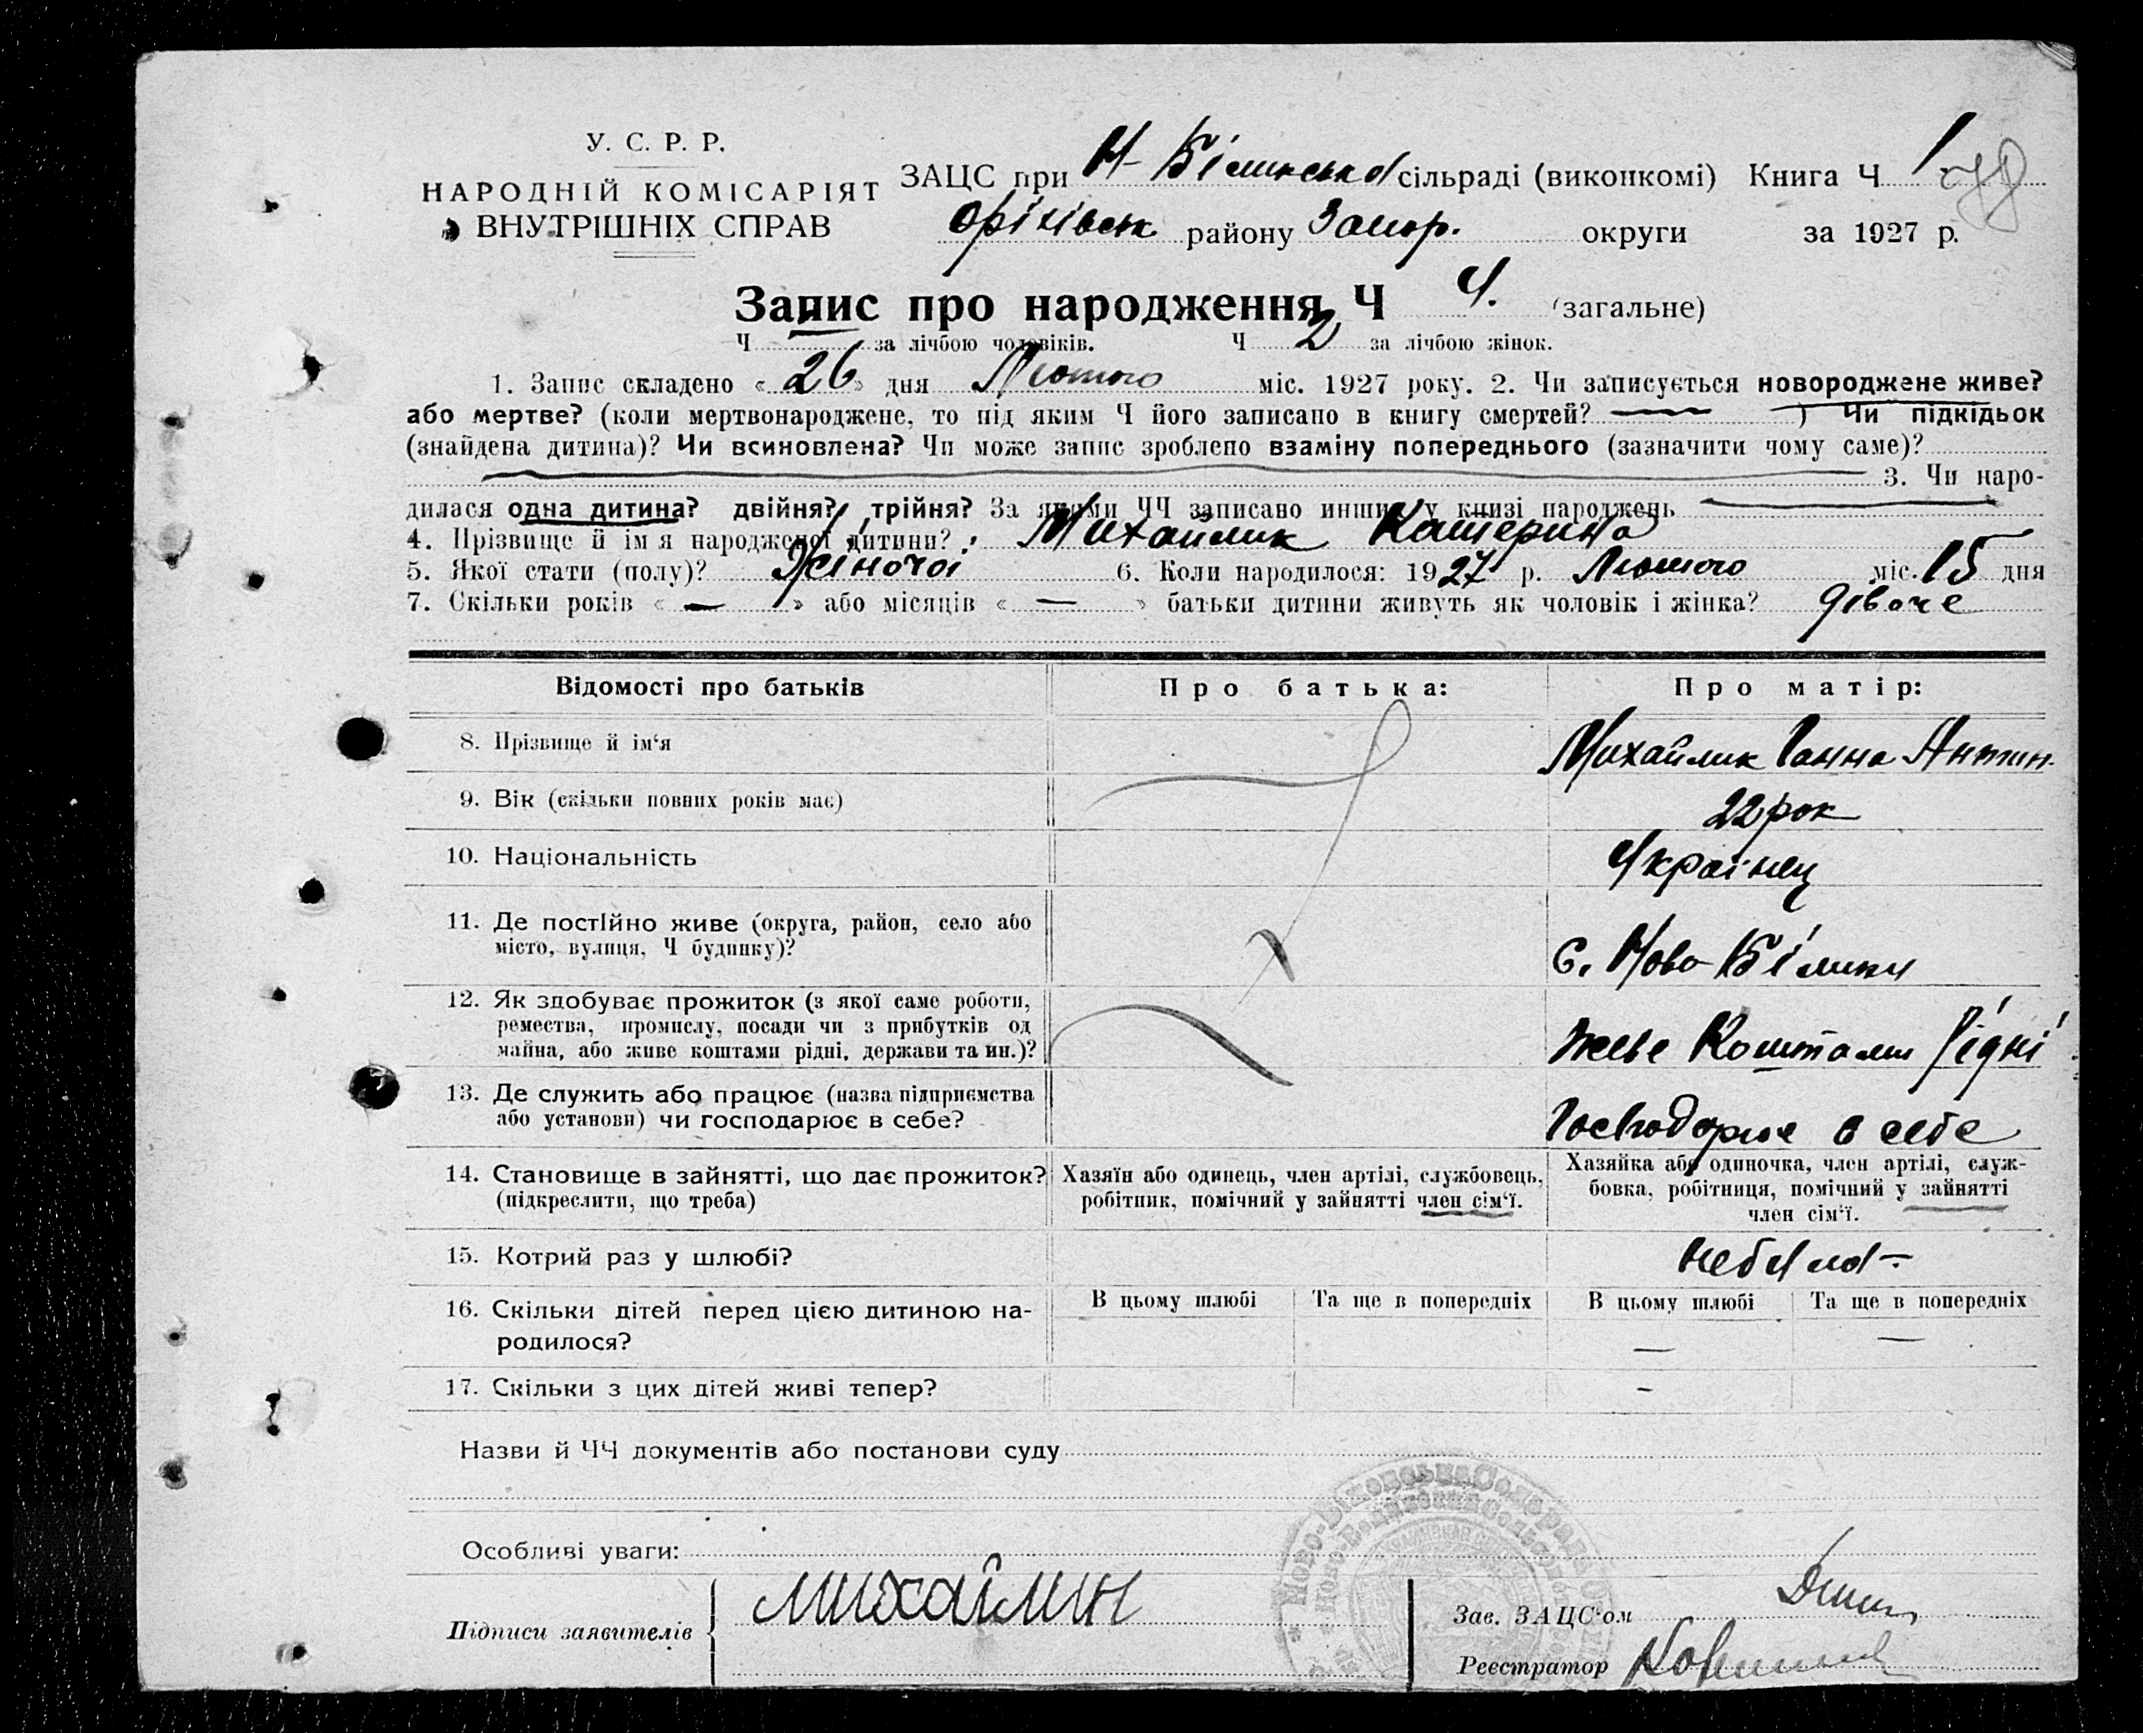 У. С. Р. Р.
НАРОДНІЙ КОМІСАРІЯТ
ВНУТРІШНІХ СПРАВ
ЗАЦС при Н-Білинські сільраді (виконкомі) Книга Ч 1
Оріхівськ району Запор. округи за 1927 р.
Запис про народження Ч 4. (загальне)
Ч — за лічбою чоловіків. Ч 2 за лічбою жінок.
1. Запис складено « 26 » дня Лютого міс. 1927 року. 2. Чи записується новороджене живе?
або мертве? (коли мертвонароджене, то під яким Ч його записано в книгу смертей? — ) Чи підкідьок
(знайдена дитина)? Чи всиновлена? Чи може запис зроблено взаміну попереднього (зазначити чому саме)?
— 3. Чи наро-
дилася одна дитина? двійня? трійня? За якими ЧЧ записано инших у книзі народжень —
4. Прізвище й ім я народженої дитини? Михайлик Катерина
5. Якої стати (полу)? Жіночої 6. Коли народилося: 1927 р. Лютого міс. 15 дня
7. Скільки років « — » або місяців « — » батьки дитини живуть як чоловік і жінка? дівоче
Відомості про батьків Про батька: Про матір:
8. Прізвище й ім‘я Михайлик Ганна Антин.
9. Вік (скільки повних років має) 22 рок
10. Національність Українец
11. Де постійно живе (округа, район, село або
місто, вулиця, Ч будинку)? с. Ново-Білики
12. Як здобуває прожиток (з якої саме роботи,
ремества, промислу, посади чи з прибутків од
майна, або живе коштами рідні, держави та ин.)? живе Коштами Рідні
13. Де служить або працює (назва підприємства
або установи) чи господарює в себе? Господарює в себе
14. Становище в зайнятті, що дає прожиток?
(підкреслити, що треба)
Хазяїн або одинець, член артілі, службовець,
робітник, помічний у зайнятті член сім‘ї.
Хазяйка або одиночка, член артілі, служ-
бовка, робітниця, помічний у зайнятті
член сім‘ї.
15. Котрий раз у шлюбі? небула —
16. Скільки дітей перед цією дитиною на-
родилося?
В цьому шлюбі Та ще в попередніх В цьому шлюбі Та ще в попередніх
— —
17. Скільки з цих дітей живі тепер? -
Назви й ЧЧ документів або постанови суду
Особливі уваги:
Підписи заявителів Михайлик
Зав. ЗАЦС‘ом
Реєстратор